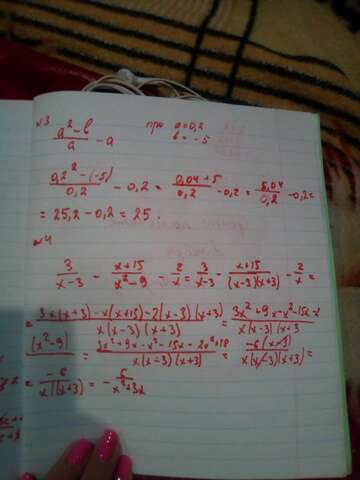 №3
(a² - b)/a - a при a=0,2 b = -5
(0,2² - (-5))/0,2 - 0,2 = (0,04 + 5)/0,2 - 0,2 = 5,04/0,2 - 0,2 =
= 25,2 - 0,2 = 25.
№4
3/(x-3) - (x+15)/(x²-9) - 2/x = 3/(x-3) - (x+15)/((x-3)(x+3)) - 2/x =
= (3x(x+3) - x(x+15) - 2(x-3)(x+3))/(x(x-3)(x+3)) = (3x² + 9x - x² - 15x - 2
(x²-9)/ = (3x² + 9x - x² - 15x - 2x² + 18)/(x(x-3)(x+3)) = (-6(x-3))/(x(x-3)(x+3)) =
= -6/(x(x+3)) = - 6/(x²+3x)